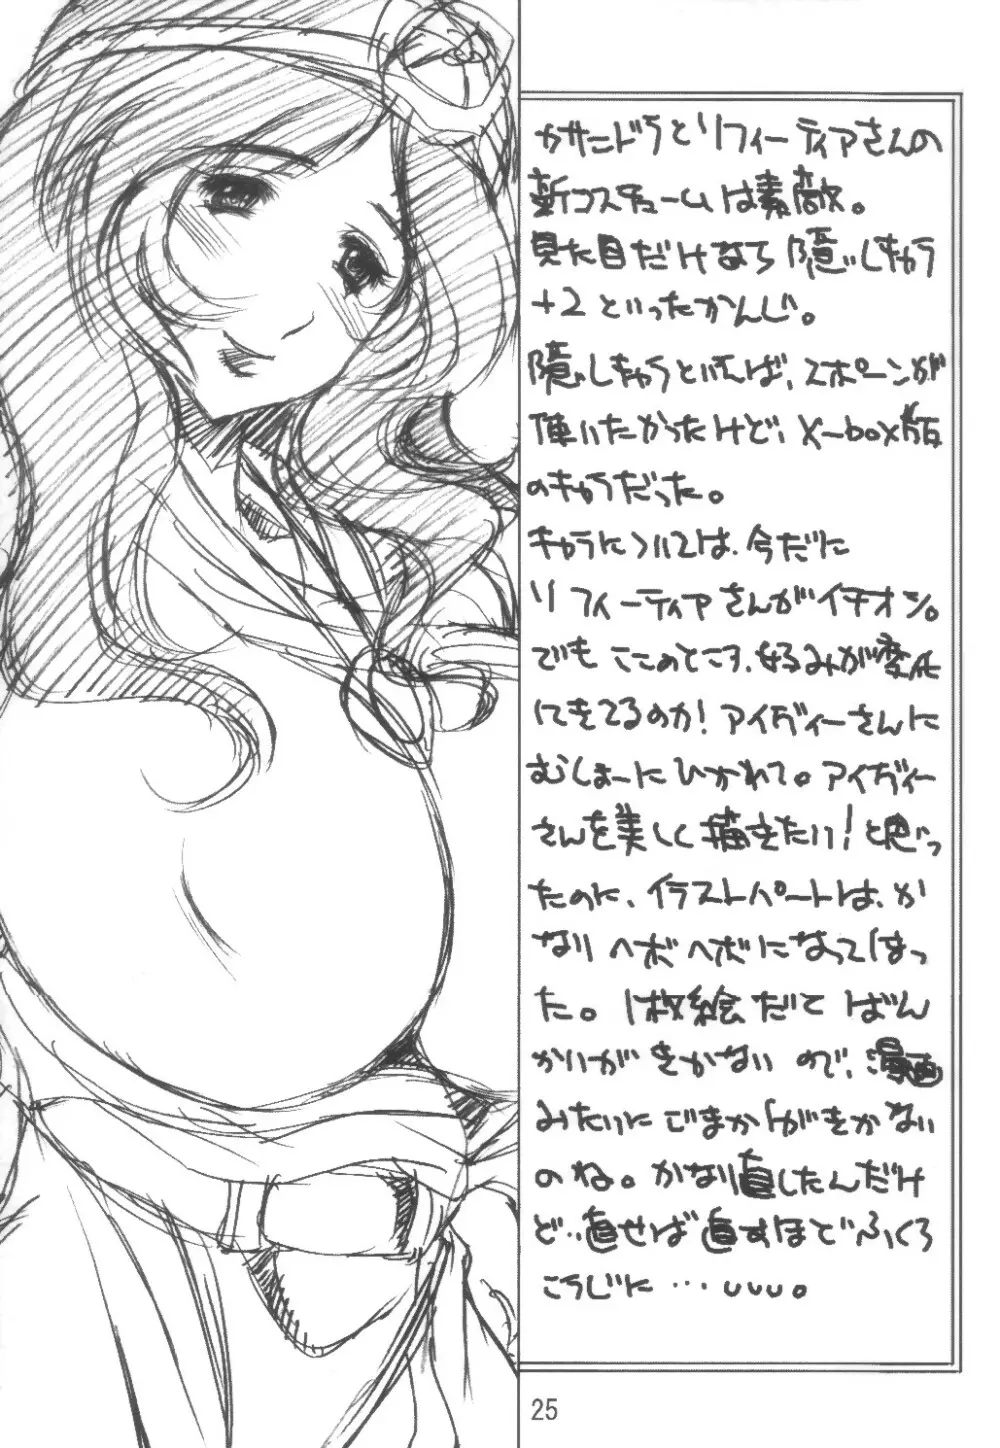 カサンドラとソフィーティアさんの
新コスチュームは素敵。
見た目だけなら隠しキャラ
+2といったかんじ。
隠しキャラといえば、スポーンが
使いたかったけど、X-box版
のキャラだった。
キャラについては、今だに
ソフィーティアさんがイチオシ。
でもここのところ、好みが変化
してきてるのか!アイヴィーさんに
むしょーにひかれて。アイヴィー
さんを美しく描きたい!と思っ
たのに、イラストパートは、か
なりヘボヘボになってしまっ
た。1枚絵だとばん
かいがきかないので、漫画
みたいにごまかしがきかない
のね。かなり直したんだけ
ど‥直せば直すほどふくろ
こうじに…UUU。
25